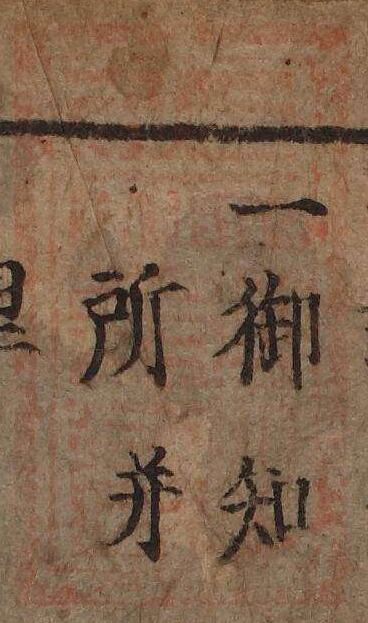 一御知
所并